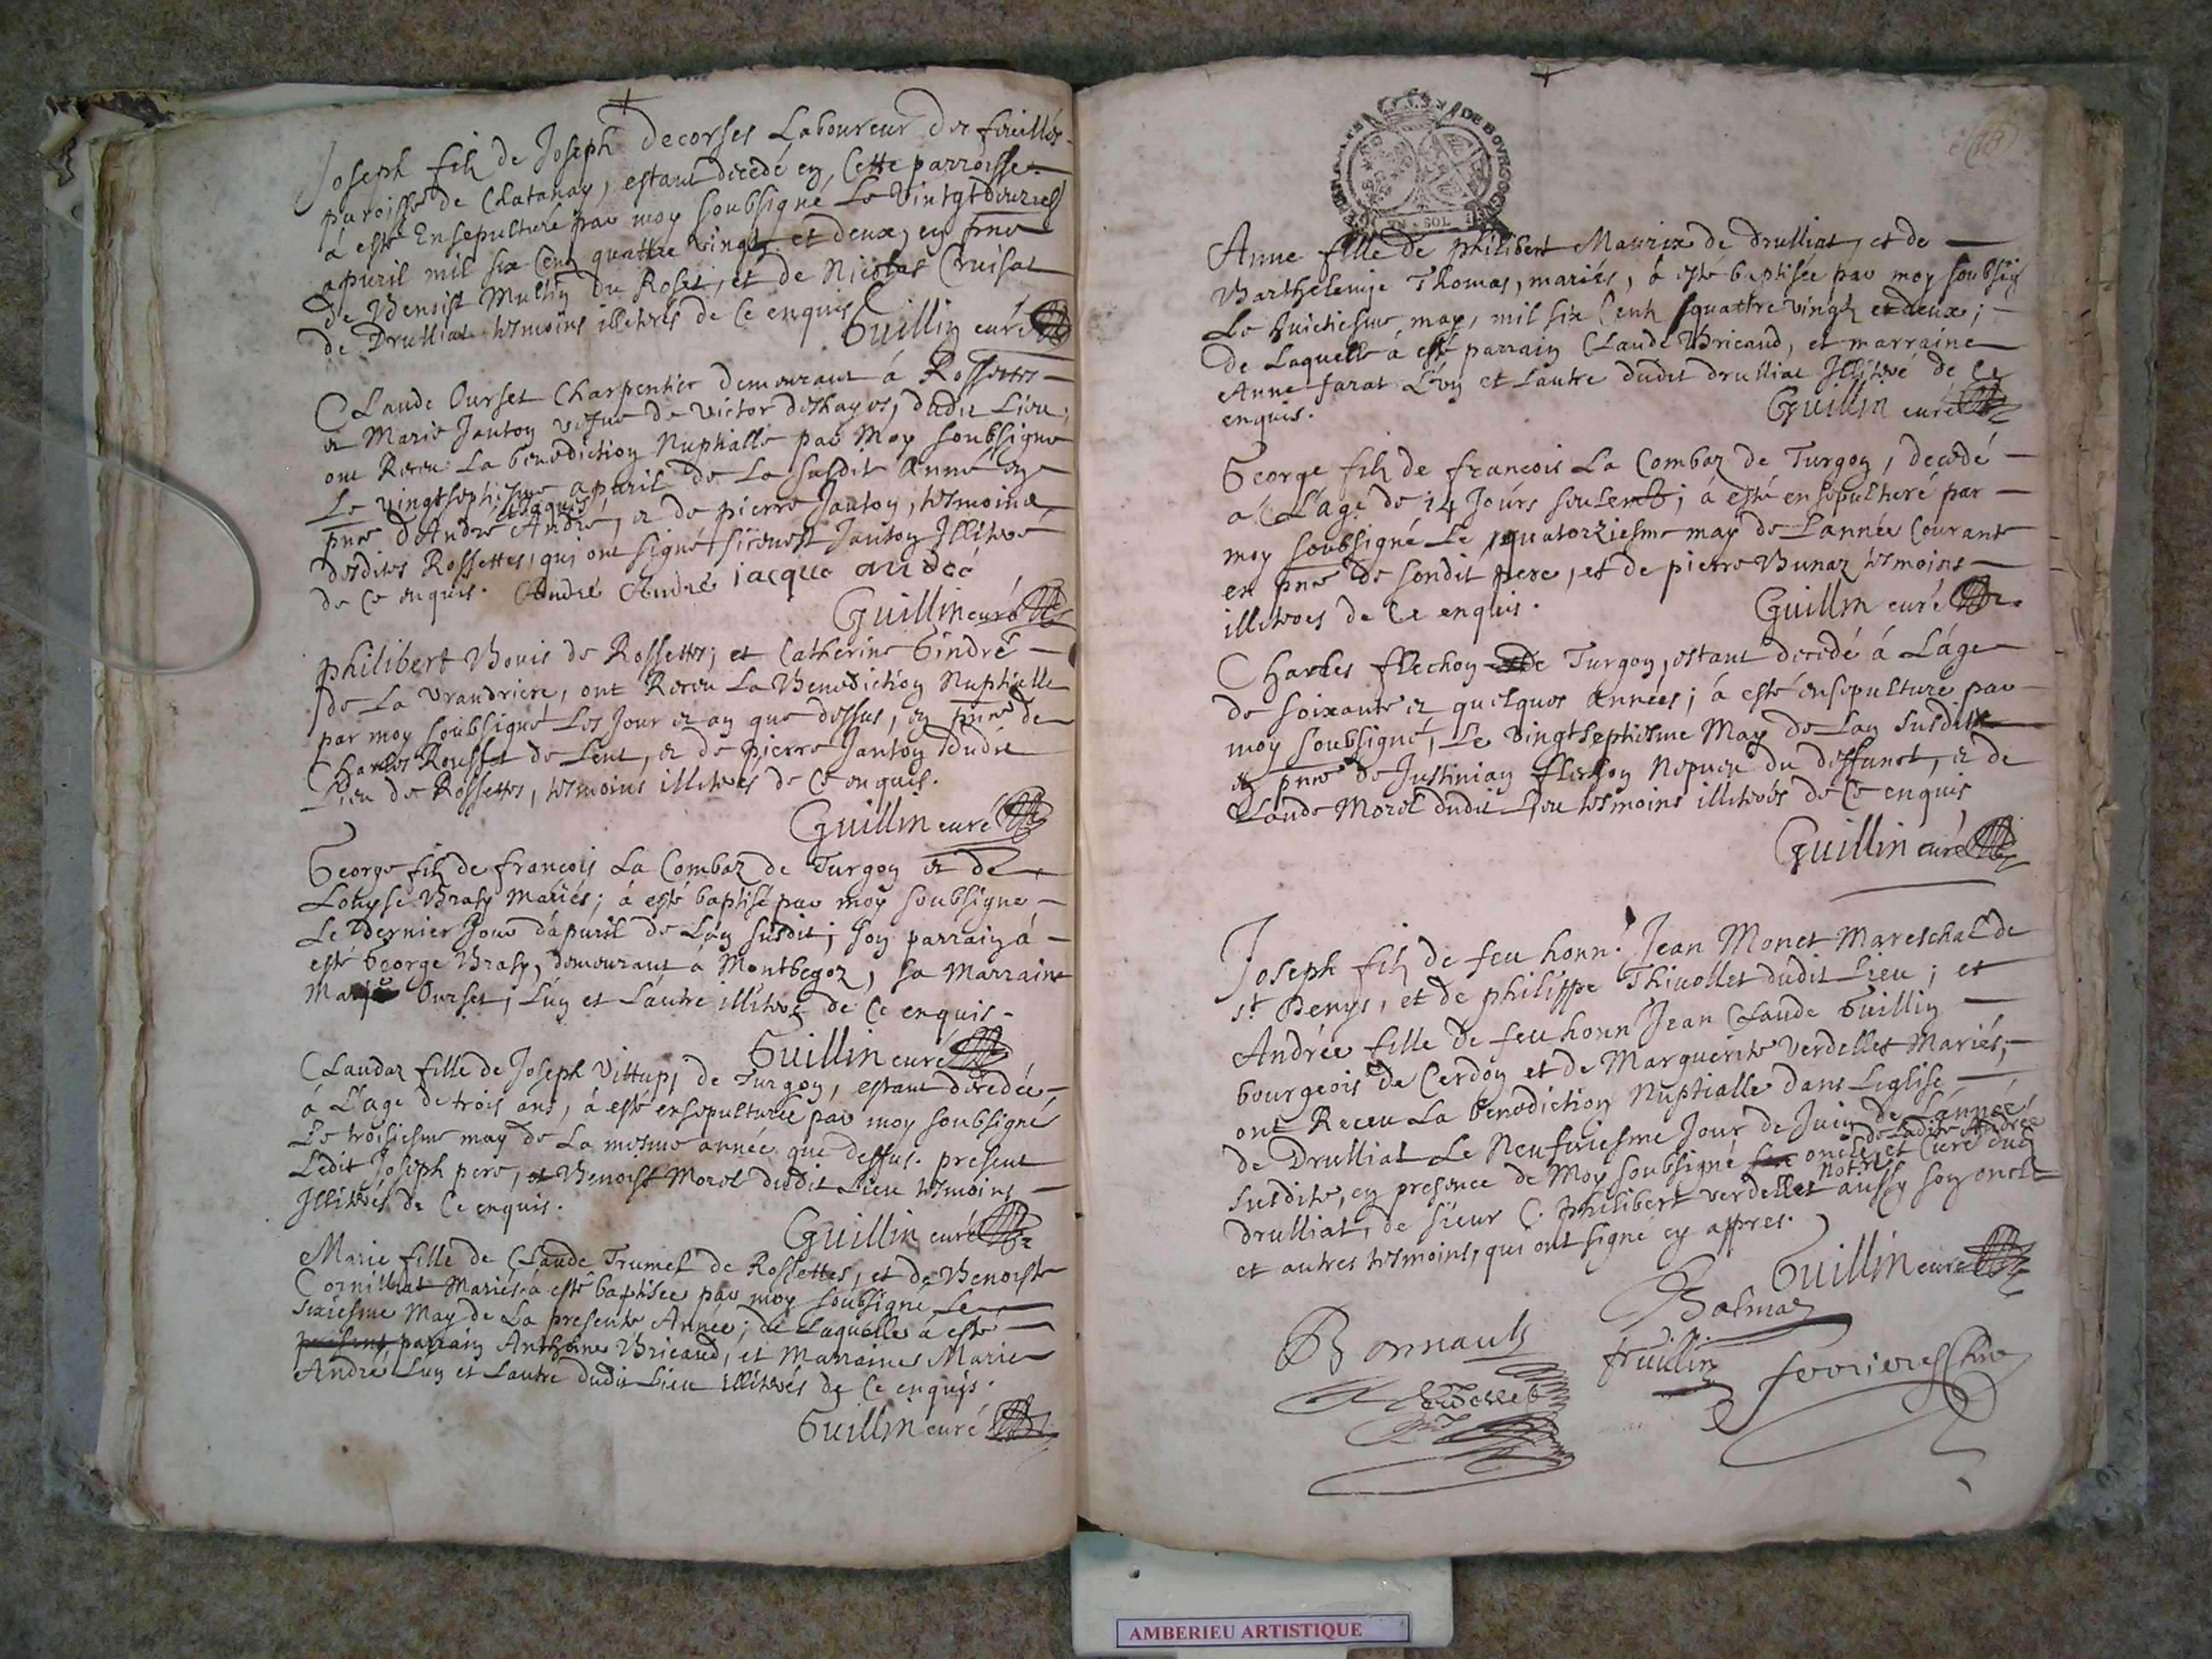 Joseph filz de Joseph Decorses Laboureur des feuillés
paroisse de Chatanay, estant decedé en Cette parroisse
à esté Ensepulturé par moy soubsigné Le Vintgtdouziesme
apuril mil six Cens quattre vingtz et deux, en pnce
de Benoist Multin du Roset, et de Nicolas Cruisat
de Drulliat tesmoins illetrés de Ce enquis
Guillin curé
Claude Ourset Charpentier demeurant á Rossettes
et Marie Janton vefue de victor deshayes, dudit Lieu,
ont Receu La benediction Nuptialle par Moy soubsigne
Le vingtseptiesme apuril de La susdite Année en
pnce d'André André, et Jacques et de pierre Janton, tesmoins
desdites Rossettes, qui ont signé sicenest Janton Illitere
de Ce enquis. André André jacque andre
Guillin curé
philibert Bouis de Rossettes; et Catherine Gindre
de La Vrandriere, ont Receu La Benediction Nuptialle
par moy soubsigné Les Jour et an que dessus, en pnce de
Charles Rousset de Lent, et de pierre Janton dudit
Lieu de Rossettes, tesmoins illiteres de Ce enquis.
Guillin curé
George filz de françois La Combaz de Turgon et de
Louyse Brasy Mariés; á esté baptisé par moy soubsigne
Le Dernier Jour d'apuril de L'an susdit; son parrain á
esté George Brasy, demeurant a Montbegoz, sa Marraine
Marie Ourset, L'un et L'autre illiteré de Ce enquis
Guillin curé
Claudaz fille de Joseph Vittupt de Turgon, estant décedée,
á L'age de trois ans, á esté ensepulturée par moy soubsigné
Le troisiesme may de La mesme année que dessus. present
Ledit Joseph pere, et Benoist Morel dudit Lieu tesmoins
Illiterés de Ce enquis.
Guillin curé
Marie fille de Claude Trumet de Rossettes, et de Benoiste
Cornillat Mariés á esté baptisée par moy soubsigné Le
sixiesme May de La presente Année; de Laquelle á esté
parrain Anthoine Bricaud, et Marraines Marie
André L'un et Lautre dudit Lieu illiterés de Ce enquis.
Guillin curé
DE BOVRGOGNE
VN SOL
Anne fille de philibert Maurix de Drulliat, et de
Barthelemie Thomas, mariés, à esté baptisée par moy soubsig
Le huictiesme may, mil six Cents quattre vingtz et deux;
de Laquelle á esté parrain Claude Bricaud, et marraine
Anne farat L'un et L'autre dudit drulliat Illiteré de Ce
enquis.
Guillin curé
George filz de françois La Combaz de Turgon, decedé
á L'áge de 14 Jours seulemt; á esté ensepulturé par
moy soubsigné Le quatorziesme may de L'année Courante
en pnce de sondit pere, et de pierre Bunaz tesmoins
illiteres de Ce enquis.
Guillin curé
Charles flechon de Turgon, estant decedé á L'áge
de soixante et quelques Années; á esté ensepulture par
moy soubsigné, Le vingtseptiesme May de L'an susdit
en pnce de Justinian flechon Nepueu du deffunct, et de
Claude Morel dudit Lieu tesmoins illiterés de Ce enquis
Guillin curé
Joseph filz de feu honn. Jean Monet Mareschal de
st Denys, et de philippe Thiuollet dudit Lieu; et
Andrée fille de feu honn Jean Claude Guillin
bourgeois de Cerdon et de Marguerite Verdellet Mariés;
ont Receu La benediction Nuptialle dans L'eglise
de Drulliat Le Neufuiesme Jour de Juin de L'année
susdite, en presence de Moy soubsigné oncle de Ladite Andrée et Curé dud
Drulliat, de sieur C. philibert verdellet notre aussy son oncle
et autres tesmoins, qui ont signé cy apres.
Guillin curé
Balmaz
Bonnault
Guillin
Verdellet